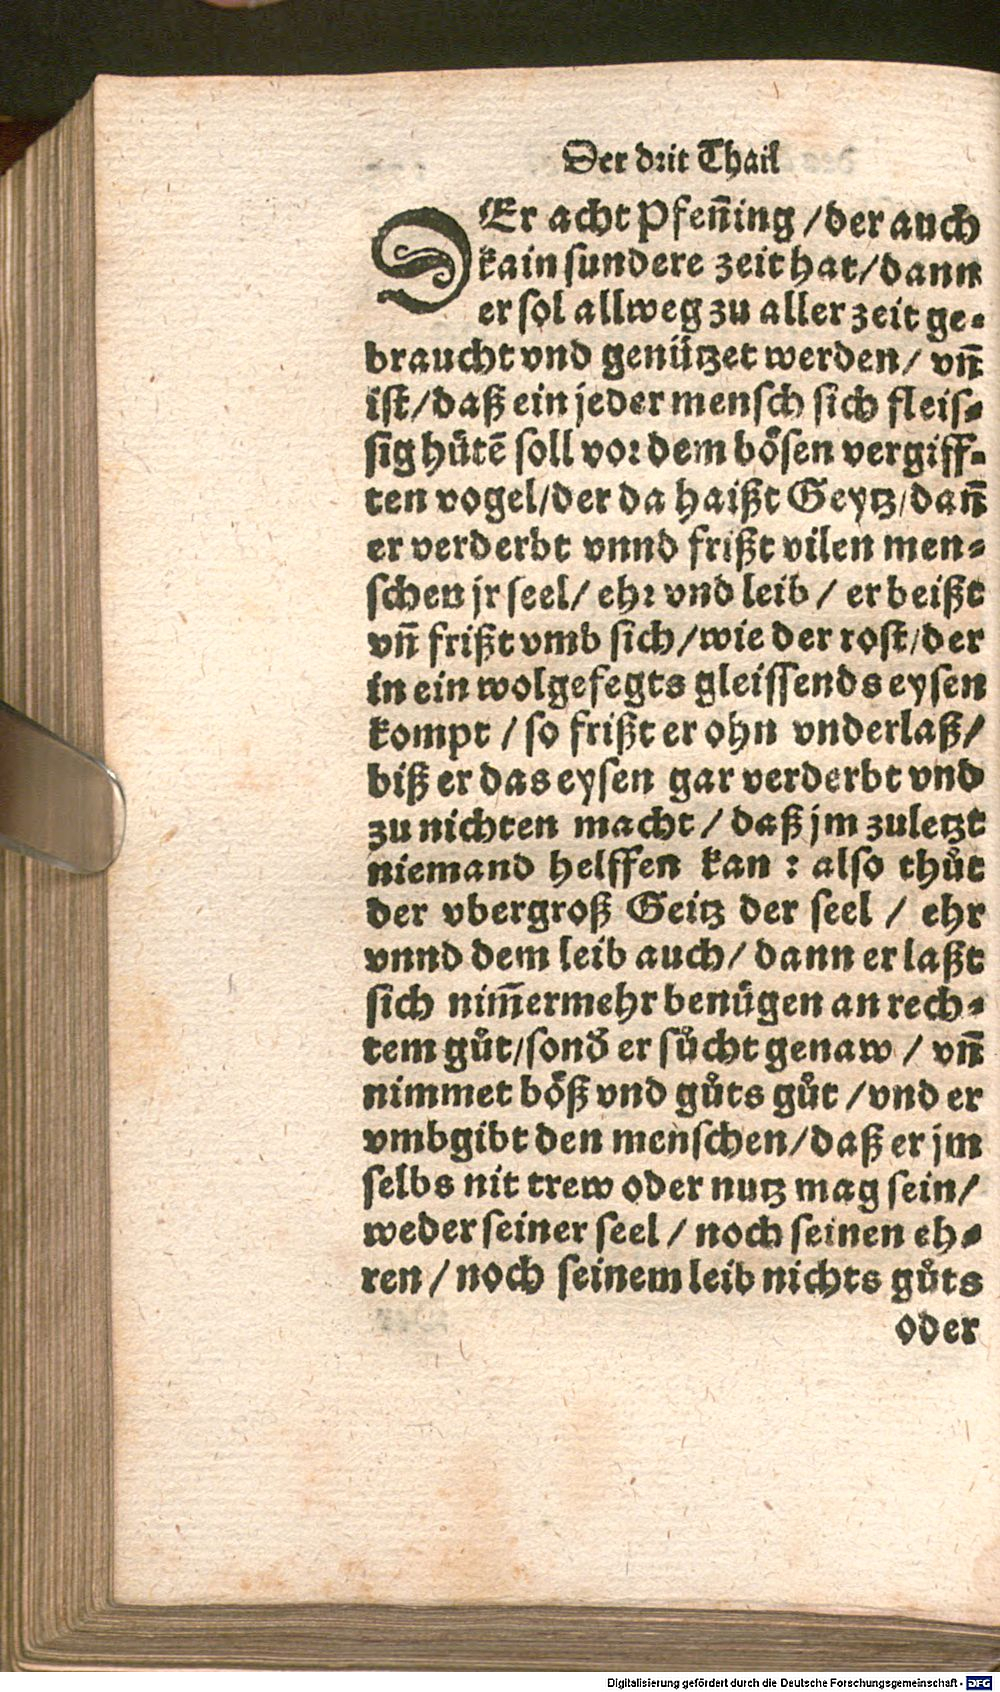 Der drit Thail
DEr acht Pfen̄ing /der auch
kain sundere zeit hat/dann
er sol allweg zu aller zeit ge⸗
braucht vnd genützet werden/ vn̄
ist/daß ein jeder mensch sich fleis⸗
sig hütē soll vor dem bösen vergiff⸗
ten vogel/der da haißt Geytz/dan̄
er verderbt vnnd frißt vilen men⸗
schen jr seel/ ehr vnd leib / er beißt
vn̄ frißt vmb sich/wie der rost/der
in ein wolgefegts gleissends eysen
kompt / so frißt er ohn vnderlaß/
biß er das eysen gar verderbt vnd
zu nichten macht / daß jm zuletzt
niemand helffen kan : also thůt
der vbergroß Geitz der seel / ehr
vnnd dem leib auch/ dann er laßt
sich nim̄ermehr benügen an rech⸗
tem gůt/sond̛ er sůcht genaw / vn̄
nimmet böß vnd gůts gůt /vnd er
vmbgibt den menschen/daß er jm
selbs nit trew oder nutz mag sein/
weder seiner seel / noch seinen eh⸗
ren / noch seinem leib nichts gůts
oder
Digitalisierung gefördert durch die Deutsche Forschungsgemeinschaft - DFG